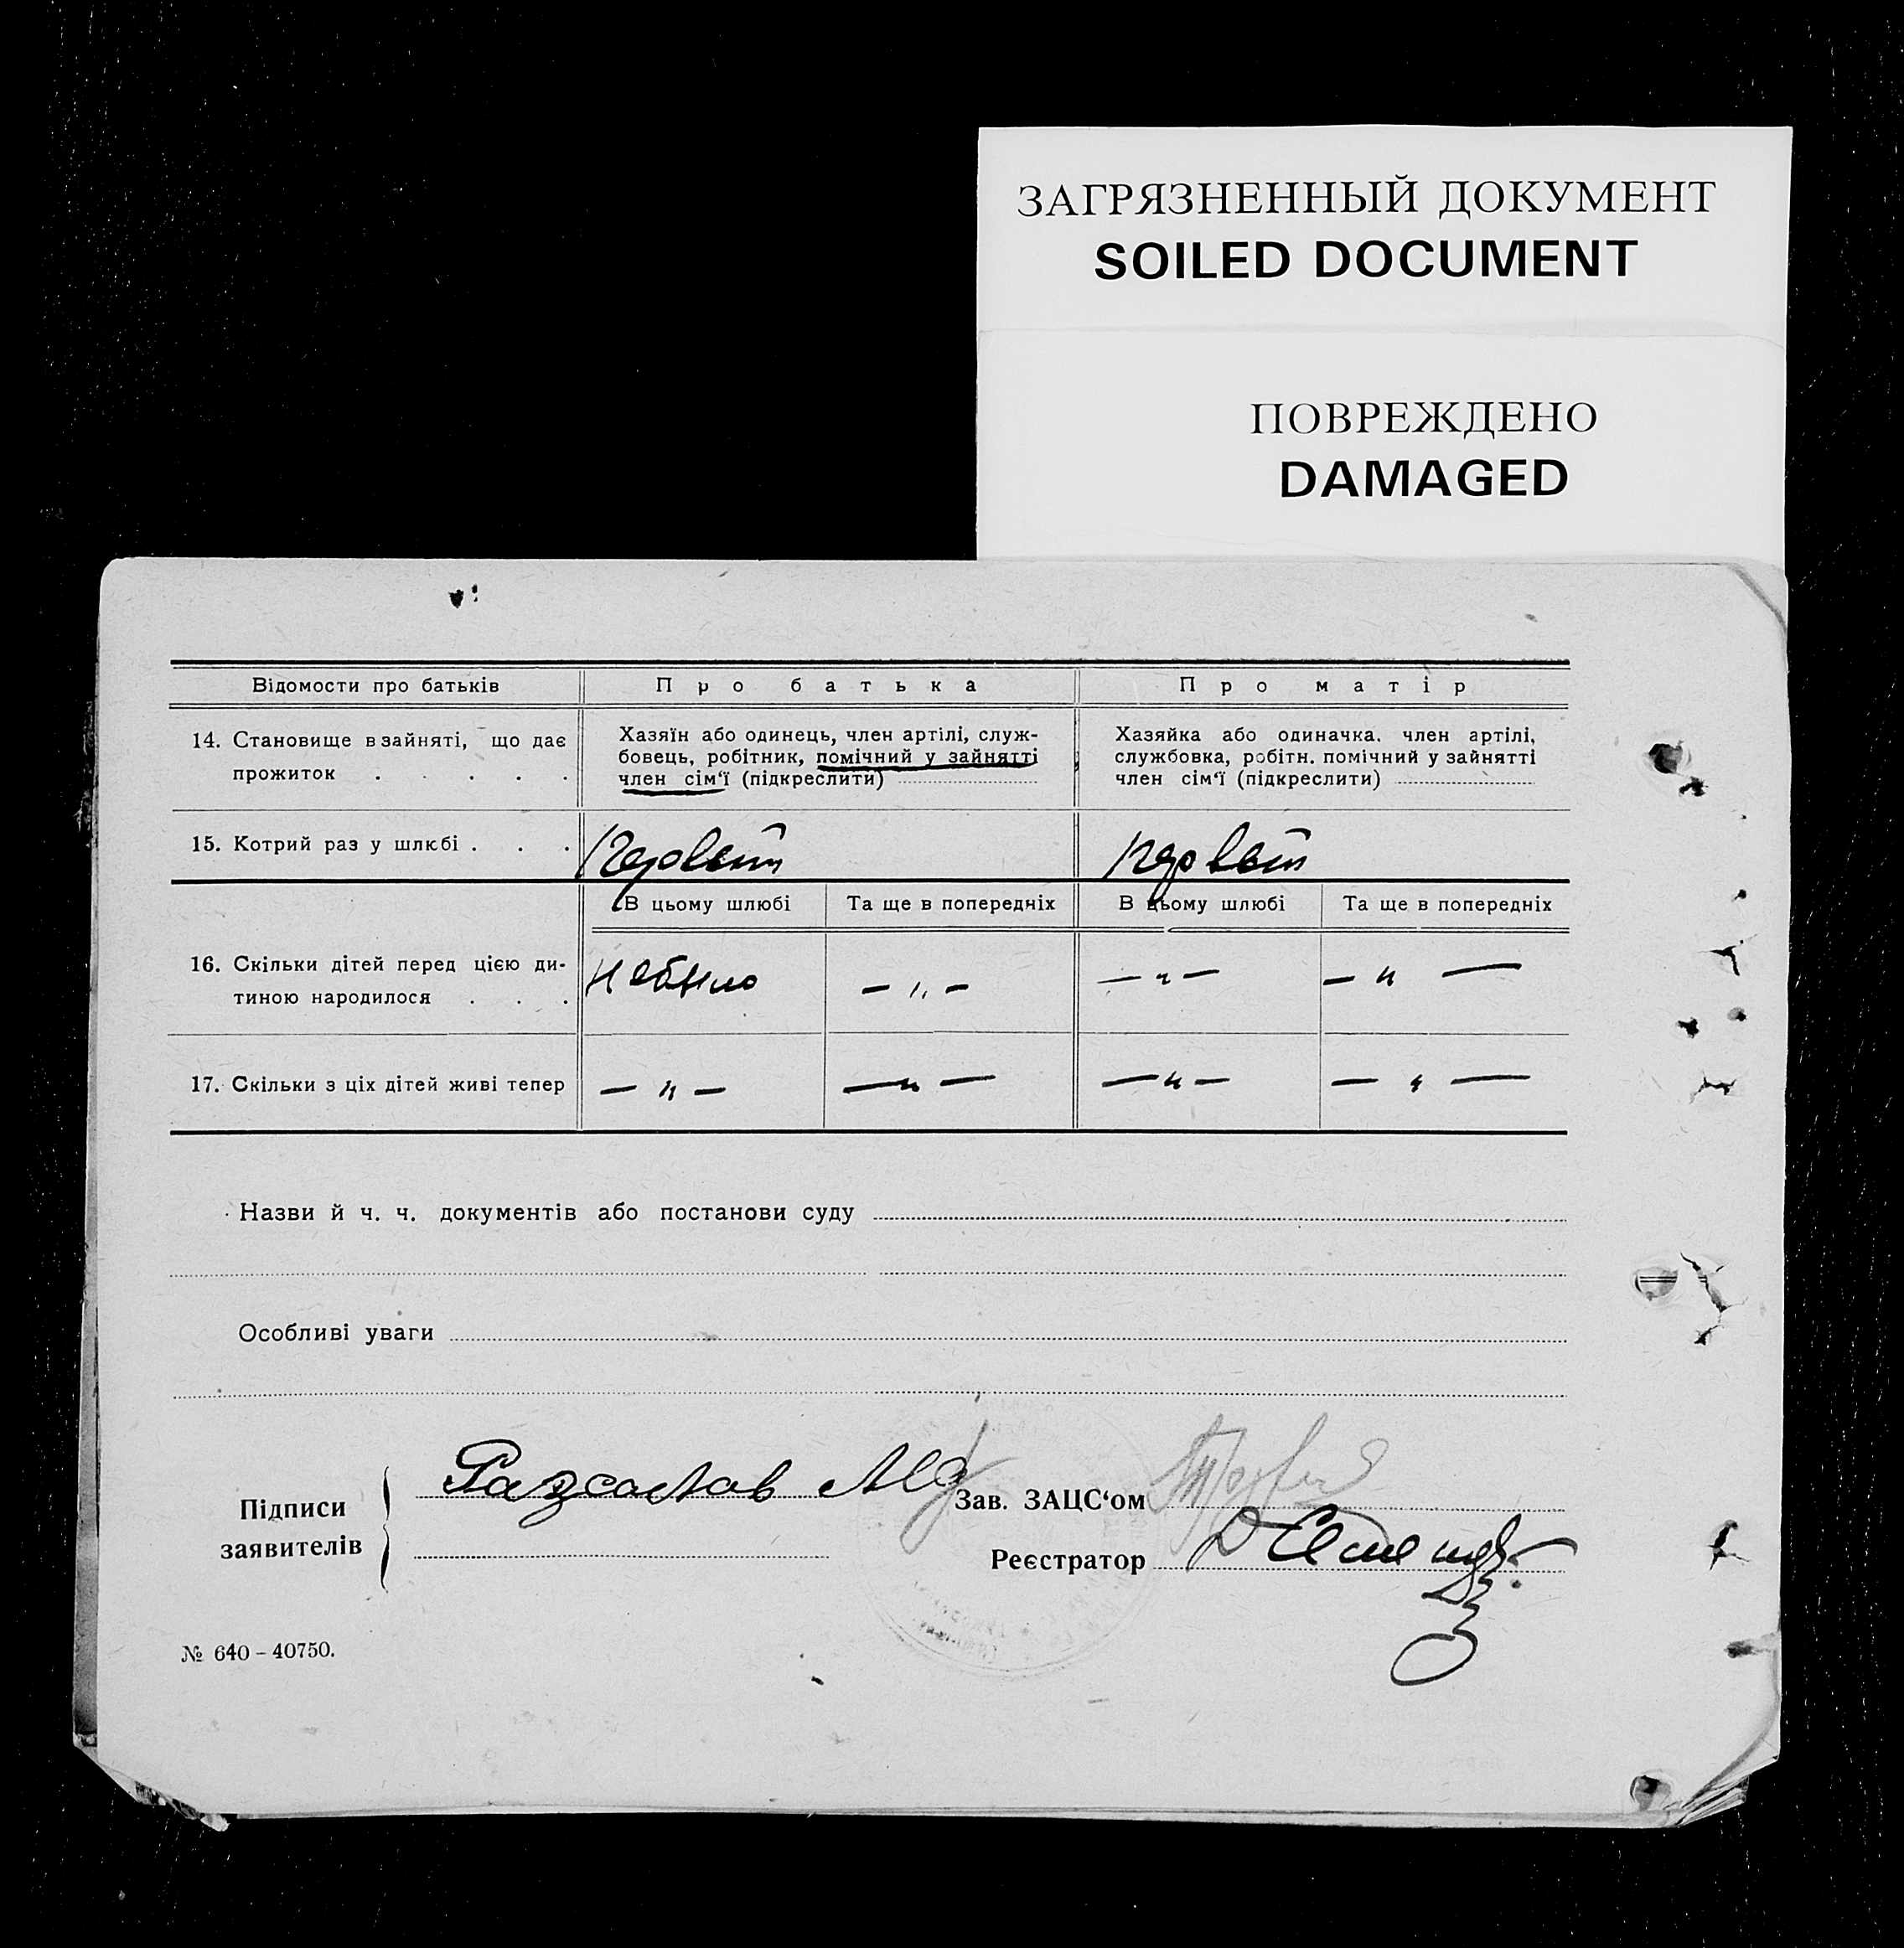 ЗАГРЯЗНЕННЫЙ ДОКУМЕНТ
SOILED DOCUMENT
ПОВРЕЖДЕНО
DAMAGED
Відомости про батьків Про батька Про матір
14. Становище в зайняті, що дає прожиток . . . . .
Хазяїн або одинець, член артілі, служ-
бовець, робітник, помічний у зайнятті
член сім‘ї (підкреслити)
Хазяйка або одиначка. член артілі,
службовка, робітн. помічний у зайнятті
член сім‘ї (підкреслити)
15. Котрий раз у шлюбі . . . Первый первый
В цьому шлюбі Та ще в попередніх В цьому шлюбі Та ще в попередніх
16. Скільки дітей перед цією ди-
тиною народилося . . . небыло — „ — — „ — — „ —
17. Скільки з ціх дітей живі тепер — „ — — „ — — „ — — „ —
Назви й ч. ч. документів або постанови суду
Особливі уваги
Підписи
заявителів
Зав. ЗАЦС‘ом
Реєстратор
№ 640 – 40750.